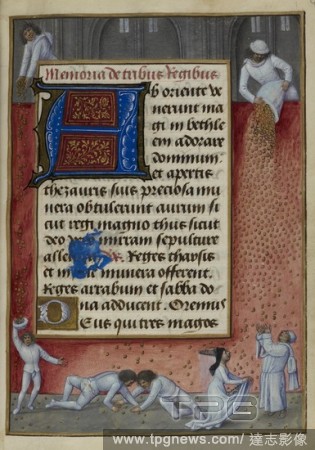 Memoria de tribus Regibus
Ab oriente ve
nerunt ma
gi in bethle
em adorare
dominum.
et apertis
thezauris suis preciosa mu
nera obtulerunt aurum si
cut regi magno thus sicut
deo mirram sepulture
Reges tharsis
et munera offerent.
Reges arrabum et sabba do
na adducent. Oremus
Deus qui tres magos
TPG
www.tpgnews.com / 達志影像